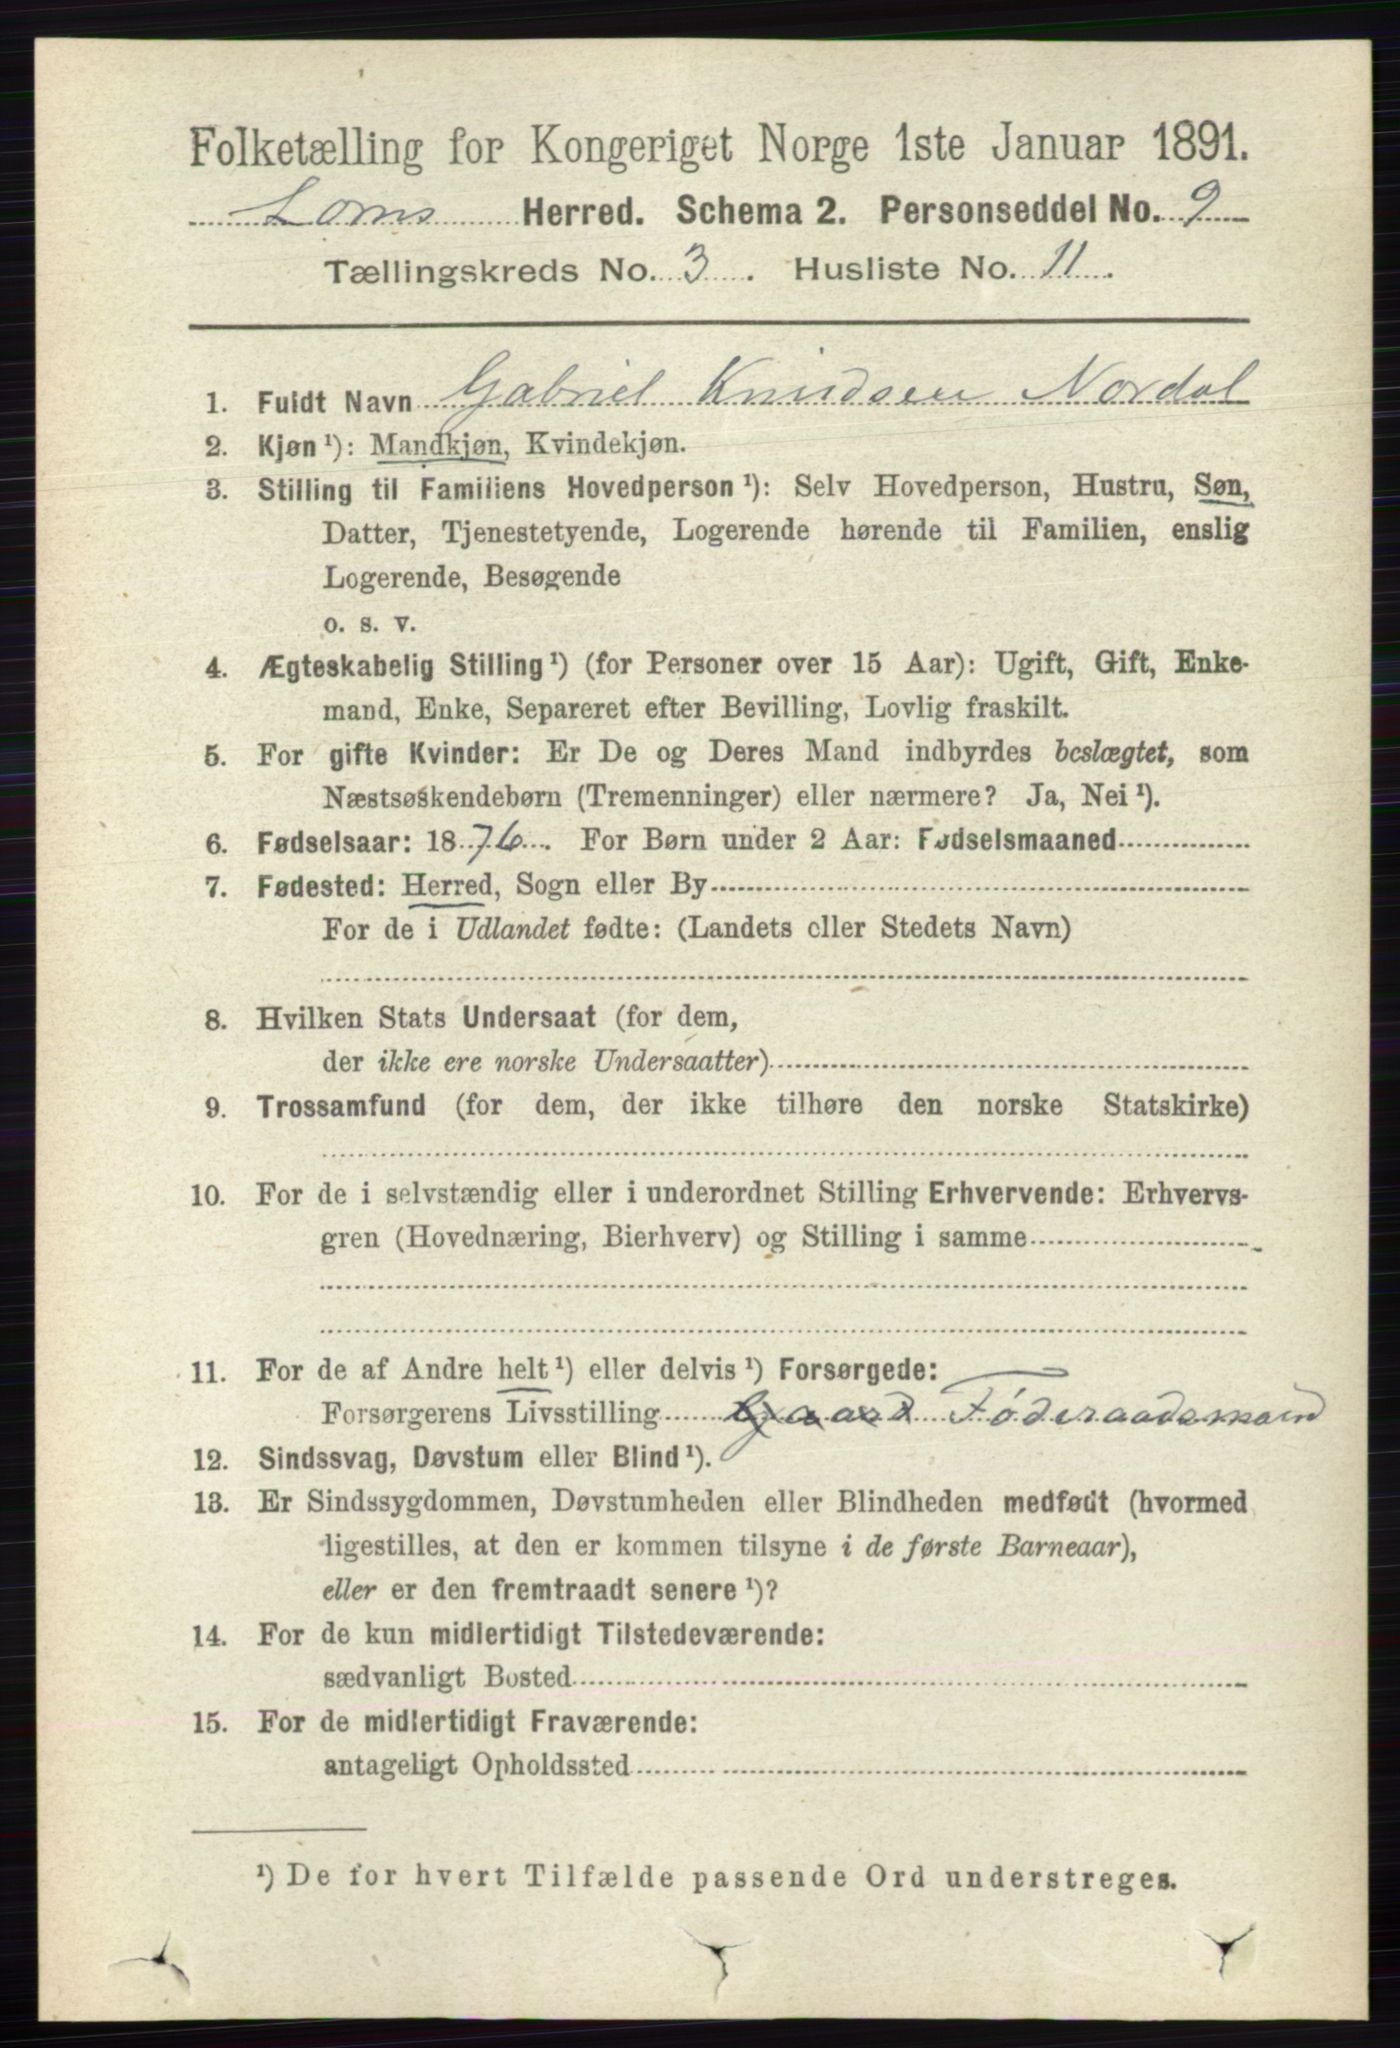 Folketælling for Kongeriget Norge 1ste Januar 1891.
Loms Herred. Schema 2. Personseddel No. 9
Tællingskreds No. 3. Husliste No. 11.
1. Fuldt Navn Gabriel Knudsen Nordal
2. Kjøn ¹): Mandkjøn, Kvindekjøn.
3. Stilling til Familiens Hovedperson ¹): Selv Hovedperson, Hustru, Søn,
Datter, Tjenestetyende, Logerende hørende til Familien, enslig
Logerende, Besøgende
o. s. v.
4. Ægteskabelig Stilling ¹) (for Personer over 15 Aar): Ugift, Gift, Enke-
mand, Enke, Separeret efter Bevilling, Lovlig fraskilt.
5. For gifte Kvinder: Er De og Deres Mand indbyrdes beslægtet, som
Næstsøskendebørn (Tremenninger) eller nærmere? Ja, Nei ¹).
6. Fødselsaar: 1876. For Børn under 2 Aar: Fødselsmaaned
7. Fødested: Herred, Sogn eller By
For de i Udlandet fødte: (Landets eller Stedets Navn)
8. Hvilken Stats Undersaat (for dem,
der ikke ere norske Undersaatter)
9. Trossamfund (for dem, der ikke tilhøre den norske Statskirke)
10. For de i selvstændig eller i underordnet Stilling Erhvervende: Erhvervs-
gren (Hovednæring, Bierhverv) og Stilling i samme
11. For de af Andre helt ¹) eller delvis ¹) Forsørgede:
Forsørgerens Livsstilling Gaard Føderaadsmand
12. Sindssvag, Døvstum eller Blind ¹).
13. Er Sindssygdommen, Døvstumheden eller Blindheden medfødt (hvormed
ligestilles, at den er kommen tilsyne i de første Barneaar),
eller er den fremtraadt senere ¹)?
14. For de kun midlertidigt Tilstedeværende:
sædvanligt Bosted
15. For de midlertidigt Fraværende:
antageligt Opholdssted
¹) De for hvert Tilfælde passende Ord understreges.